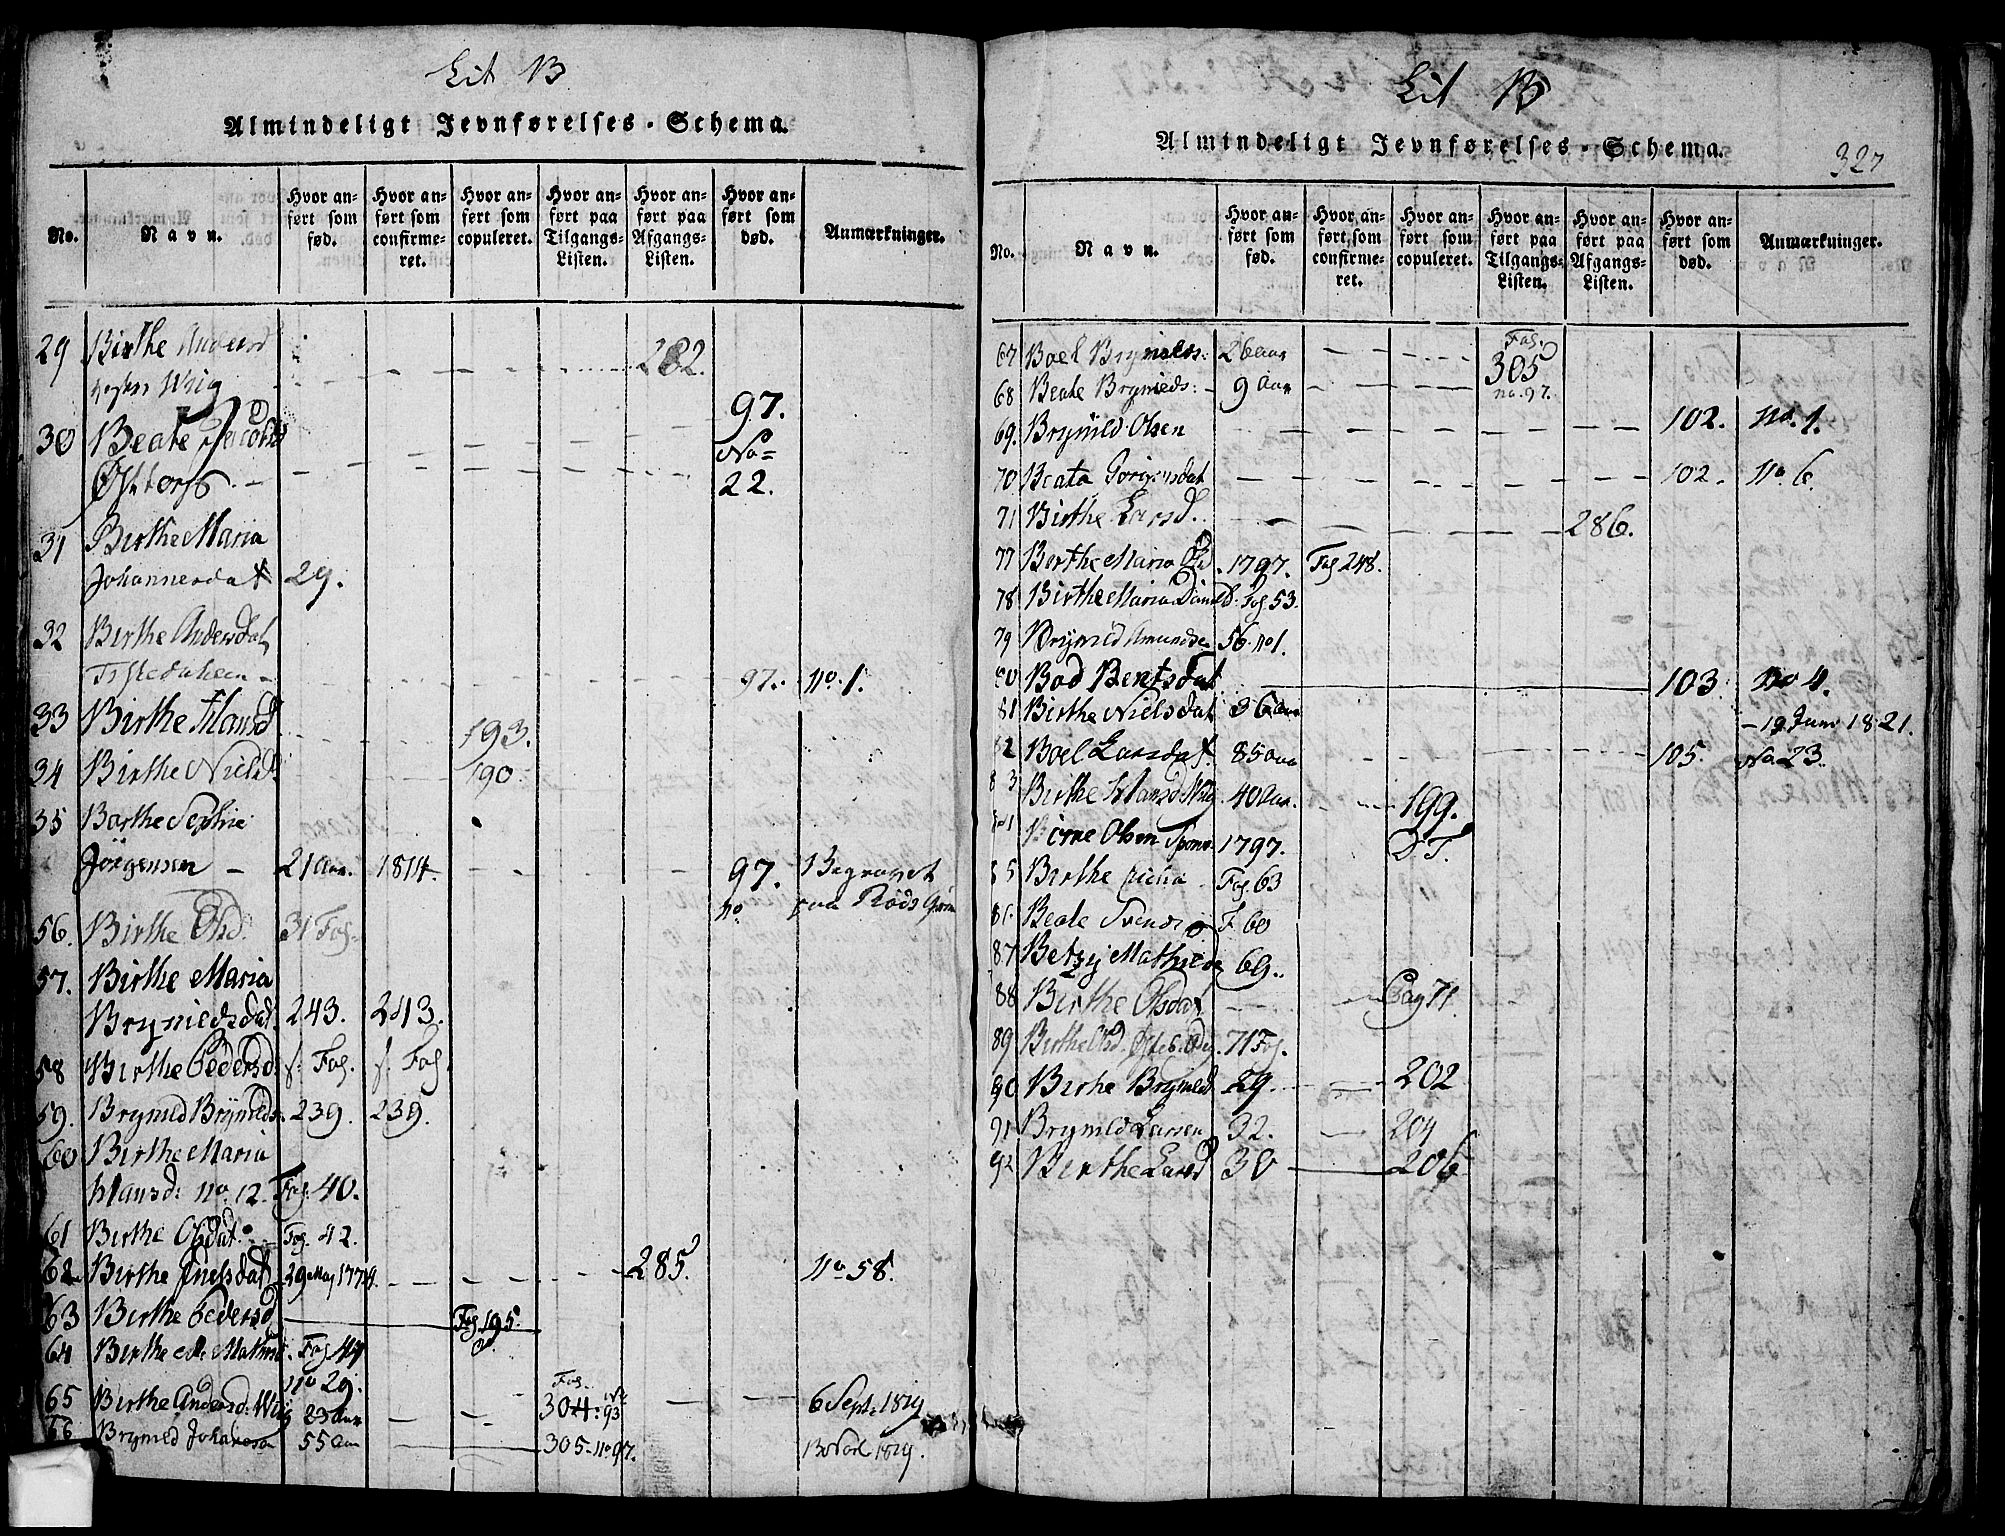 Lit B
Almindeligt Jevnførelses-Schema.
No.
Navn.
Hvor anført som fød.
Hvor anført som confirmeret.
Hvor anført som copuleret.
Hvor anført paa Tilgangs-Listen.
Hvor anført paa Afgangs-Listen.
Hvor anført som død.
Anmærkninger.
29 Birthe Andersd 282.
30 Beate Jacobs 97.
No 22.
31 Birthe Maria
Johannesdat 29.
32 Birthe Andersdat
97. no. 1.
33 Birthe Hansd 193.
34 Birthe Nielsd 190
35 Barthe Sophie
Jörgensen 21 Aar. 1814. 97. Begravet
no paa Röds
56. Birthe Olsd. 31 Fol.
57. Birthe Maria
Brynieldsdat. 243. 243.
58 Birthe Pedersd. f. Fol. f. Fol.
59. Bryneld Brynields. 239. 239.
60 Birthe Maria
Hansd: no. 12. Fol. 40.
61 Birthe Olsdat. Fol. 42.
62 Birthe Nielsdat 29 May 1774. 285. no 58.
63 Birthe Pedersd Fol. 195.
64 Birthe M. Fol 44
no 29.
65 Birthe Andersd: Wiig 23 Aar Fol. 304: No 93 6 Sept: 1819
66 Bryneld Johannesen 55 Aar 305. no 97. 1819.
Lit B
Almindeligt Jevnførelses-Schema.
327
No.
Navn.
Hvor anført som fød.
Hvor anført som confirmeret.
Hvor anført som copuleret.
Hvor anført paa Tilgangs-Listen.
Hvor anført paa Afgangs-Listen.
Hvor anført som død.
Anmærkninger.
67 Boel Brynields: 26 aar Fol. 305
68 Beate Brynields: 9 Aar no. 97.
69. Bryneld Olsen 102. no. 1.
70 Beata 102. no 6.
71 Birthe Larsd. 286.
77 Berthe Maria Olsd. 1797. Fol 248.
78 Birthe Maria Daniels. Fol. 53.
79 Bryneld Amundsen 56. no 1.
80 Boel Bentsdat 103 No 4.
81 Birthe Nielsdat 36 aar 19 Juni 1821.
82 Boel Larsdat. 85 aar 105. No 23.
83 Birthe Hansd Wiig 40 Aar. 199.
Olsen 1797. D T.
85 Birthe Fol. 63
86. Beate F 60
87 Betzy Mathilde 69.
88 Birthe Olsdat Pag 71
89 Birthe Olsd. 71 Fol.
90 Birthe Bryneld 29. 202
91 Bryneld Larsen 32. 204
92 Birthe Larsd 30 206